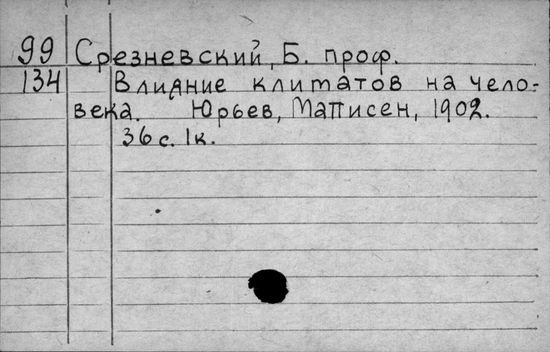 99 Срезневский, Б. проф.
134 Влияние климатов на чело-
века. Юрьев, Маттисен, 1902.
36 с. 1 к.